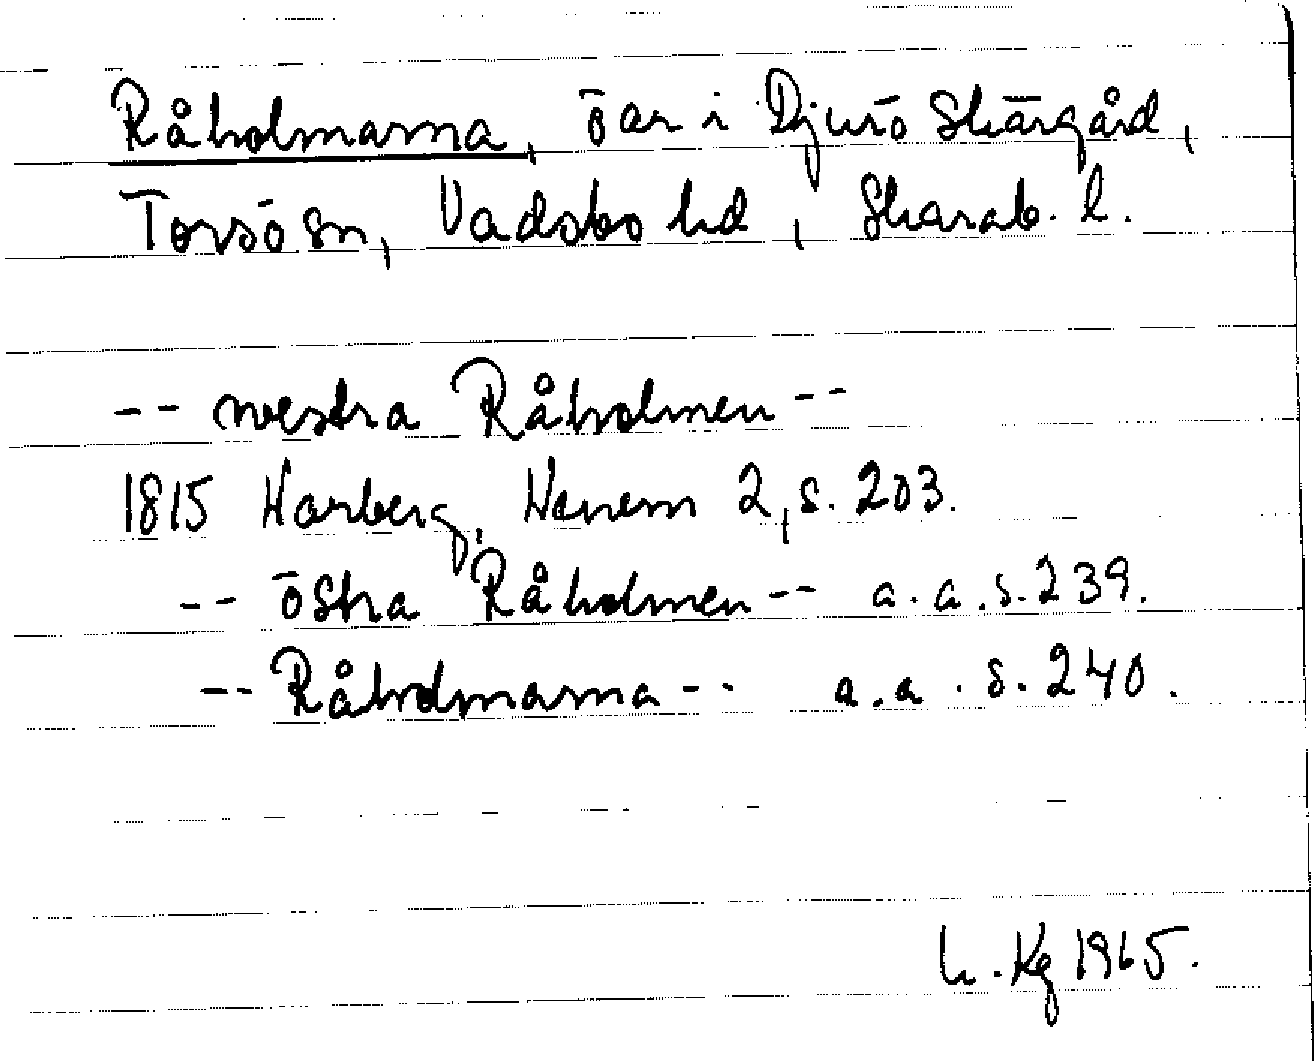 Råholmarna, öar i Djurö Skärgård,
Torsö sn, Vadsbo hd, Skarab. l.
-- westra Råholmen --
1815 Warberg, Wenern 2, s. 203.
-- östra Råholmen -- a. a. s. 239.
-- Råholmarna -- a. a. s. 240.
Kg 1965.